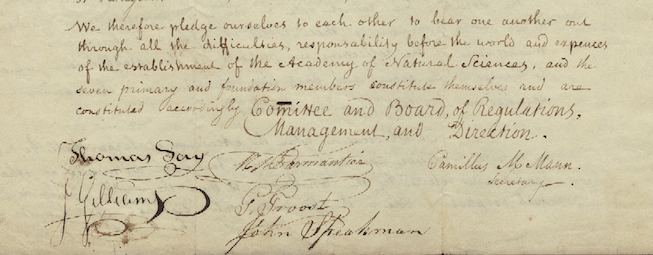 We therefore pledge ourselves to each other to bear one another out
through all the difficulties, responsability before the world and expences
of the establishment of the Academy of Natural Sciences, and the
seven primary and foundation members constitute themselves and are
constituted accordingly Com̄ittee and Board, of Regulations,
Management, and Direction.
Thomas Say Parmantier Camillus M Mann.
Secretary
J Gilliams G. Troost
John Speakman